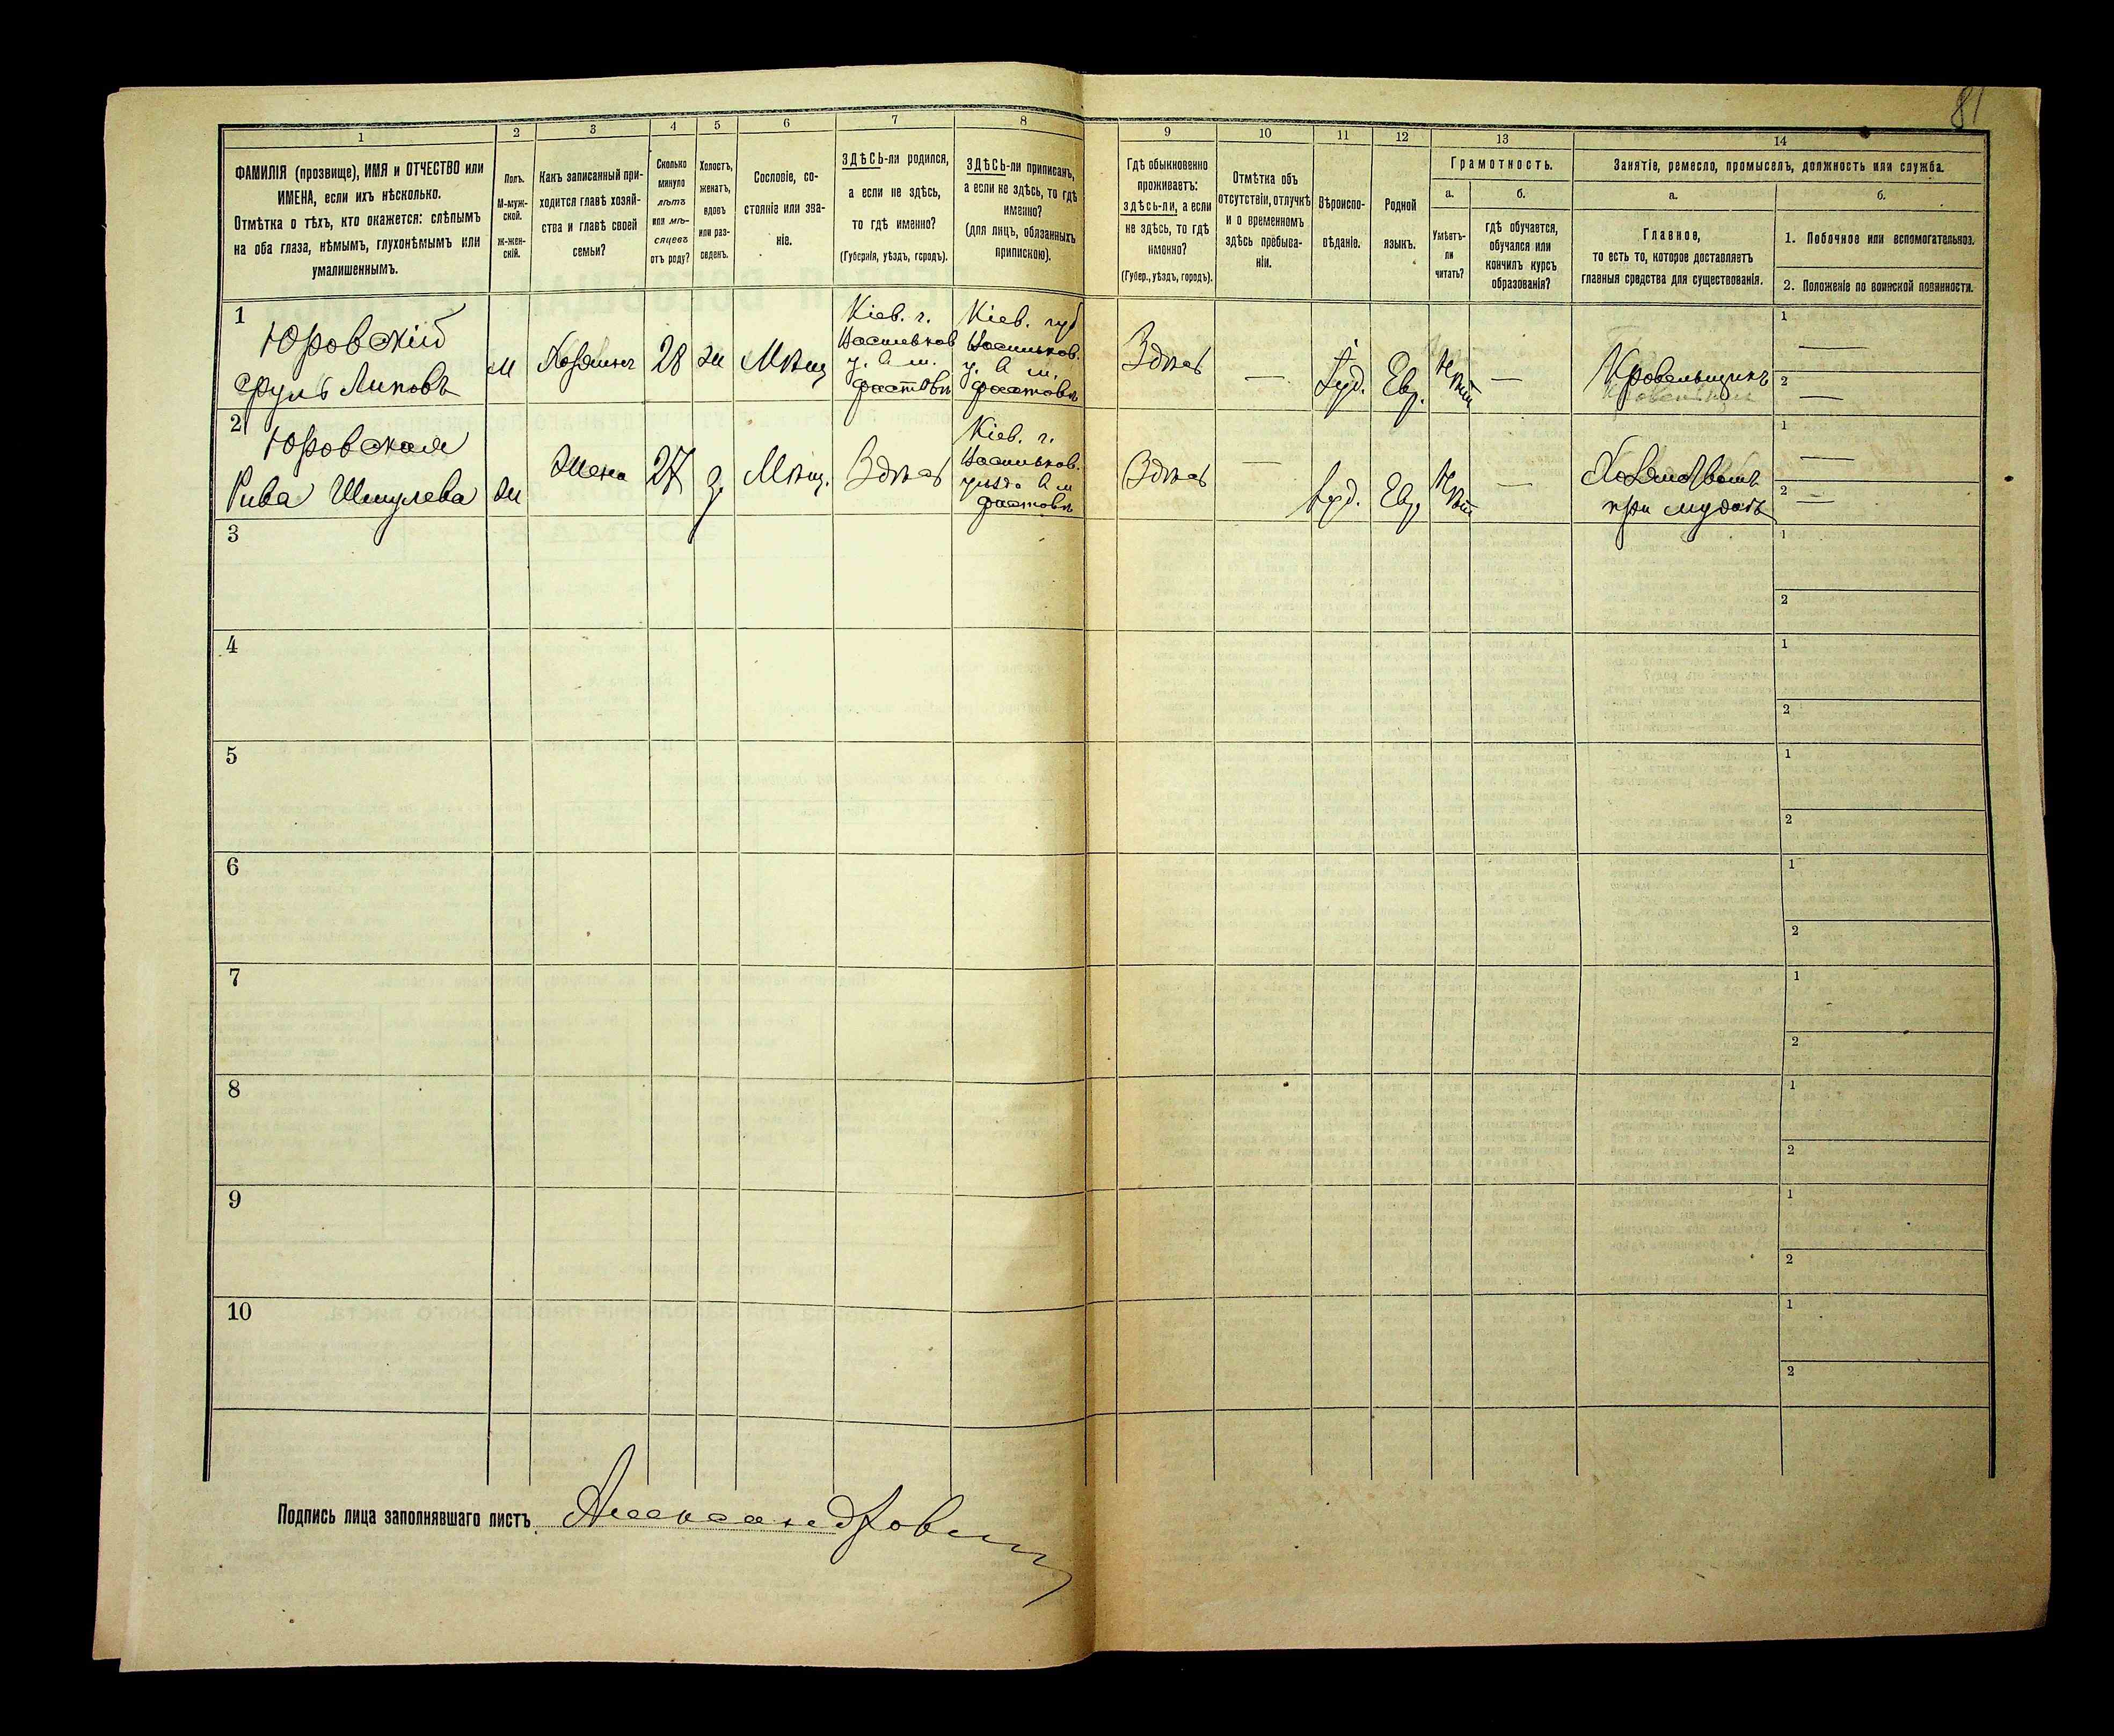 81
1 2 3 4 5 6 7 8 9 10 11 12 13 14
ФАМИЛІЯ (прозвище), ИМЯ и ОТЧЕСТВО или
ИМЕНА, если ихъ нѣсколько.
Отмѣтка о тѣхъ, кто окажется: слѣпымъ
на оба глаза, нѣмымъ, глухонѣмымъ или
умалишеннымъ.
Полъ.
М-муж-
ской.
Ж-жен-
скій.
Какъ записанный при-
ходится главѣ хозяй-
ства и главѣ своей
семьи?
Сколько
минуло
лѣтъ
или мѣ-
сяцевъ
отъ роду?
Холостъ,
женатъ,
вдовъ
или раз-
веденъ.
Сословіе, со-
стояніе или зва-
ніе.
ЗДѢСЬ-ли родился,
а если не здѣсь,
то гдѣ именно?
(Губернія, уѣздъ, городъ).
ЗДѢСЬ-ли приписанъ,
а если не здѣсь, то гдѣ
именно?
(для лицъ, обязанныхъ
припискою).
Гдѣ обыкновенно
проживаетъ:
здѣсь-ли, а если
не здѣсь, то гдѣ
именно?
(Губер., уѣздъ, городъ).
Отмѣтка объ
отсутствіи, отлучкѣ
и о временномъ
здѣсь пребыва-
ніи.
Вѣроиспо-
вѣданіе.
Родной
языкъ.
Грамотность.
а.
Умѣетъ-
ли
читать?
б.
гдѣ обучается,
обучался или
кончилъ курсъ
образованія?
Занятіе, ремесло, промыселъ, должность или служба.
а.
Главное,
то есть то, которое доставляетъ
главныя средства для существованія.
б.
1. Побочное или вспомогательное.
2. Положеніе по воинской повинности.
1
Юровскій
Сруль Липовъ
м
Хозяинъ
28
ж
Мѣщ
Кіев. г.
Васильков
у. в м.
Фастовѣ
Кіев. губ
Васильков.
у. в м.
Фастовѣ
Здѣсь
—
Іуд.
Евр.
Нѣт
—
Кровельщикъ
1 —
2 —
2
Юровская
Рива Шмулева
ж
Жена
27
з.
Мѣщ.
Здѣсь
Кіев. г.
Васильков.
уѣзда в м
Фастовѣ
Здѣсь
—
Іуд.
Евр.
Нѣт
—
при мужѣ
1 —
2 —
3
1
2
4
1
2
5
1
2
6
1
2
7
1
2
8
1
2
9
1
2
10
1
2
Подпись лица заполнявшаго листъ.